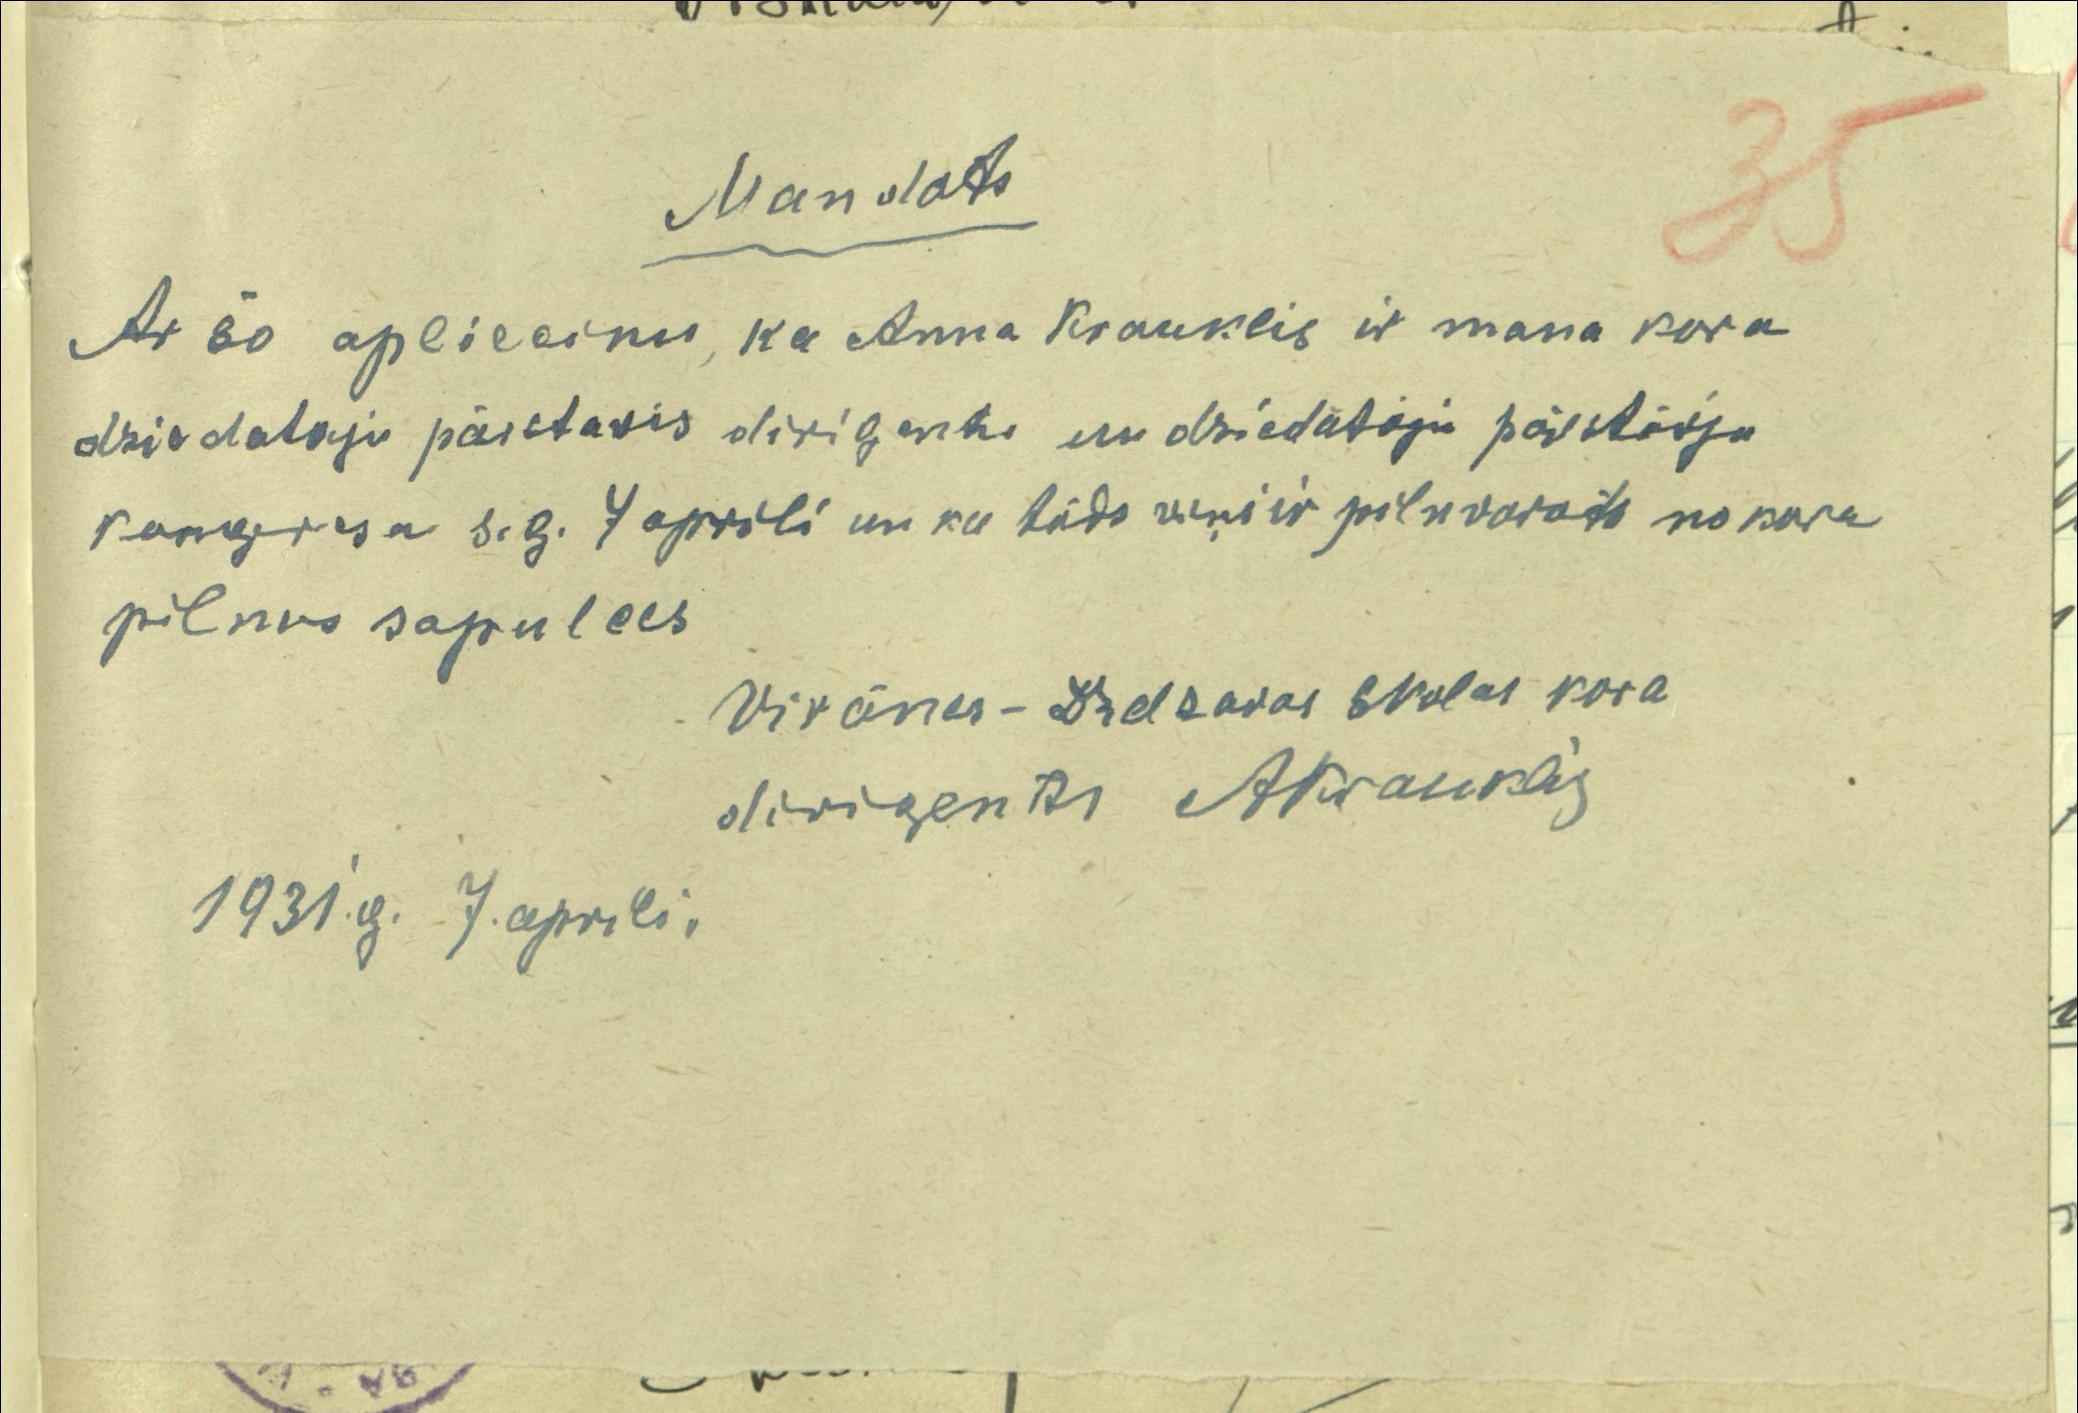 35
Mandāts
Ar šo apliecinu, ka Anna Krauklis ir mana kora
dziedataju pārstavis dirigentu un dziedātāju pārstāvju
kongresa s.g. 7 aprili un ka tāds viņš ir pilnvarots no kora
pilnas sapulces
Virānes - Dzelzavas skolas kora
dirigents AKrauklis
1931.g. 7. aprili.